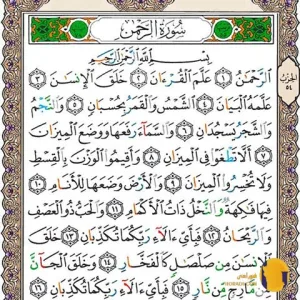 سُورَةُ الرَّحْمٰن
بِسْمِ اللَّهِ الرَّحْمٰنِ الرَّحِيمِ
الرَّحْمٰنُ ١ عَلَّمَ الْقُرْءَانَ ٢ خَلَقَ الْإِنسَانَ ٣
عَلَّمَهُ الْبَيَانَ ٤ الشَّمْسُ وَالْقَمَرُ بِحُسْبَانٍ ٥ وَالنَّجْمُ
وَالشَّجَرُ يَسْجُدَانِ ٦ وَالسَّمَاءَ رَفَعَهَا وَوَضَعَ الْمِيزَانَ
٧ أَلَّا تَطْغَوْا فِي الْمِيزَانِ ٨ وَأَقِيمُوا الْوَزْنَ بِالْقِسْطِ
وَلَا تُخْسِرُوا الْمِيزَانَ ٩ وَالْأَرْضَ وَضَعَهَا لِلْأَنَامِ ١٠
فِيهَا فَاكِهَةٌ وَالنَّخْلُ ذَاتُ الْأَكْمَامِ ١١ وَالْحَبُّ ذُو الْعَصْفِ
وَالرَّيْحَانُ ١٢ فَبِأَيِّ ءَالَاءِ رَبِّكُمَا تُكَذِّبَانِ ١٣ خَلَقَ
الْإِنسَانَ مِن صَلْصَالٍ كَالْفَخَّارِ ١٤ وَخَلَقَ الْجَانَّ
مِن مَّارِجٍ مِّن نَّارٍ ١٥ فَبِأَيِّ ءَالَاءِ رَبِّكُمَا تُكَذِّبَانِ
الحزب
٥٤